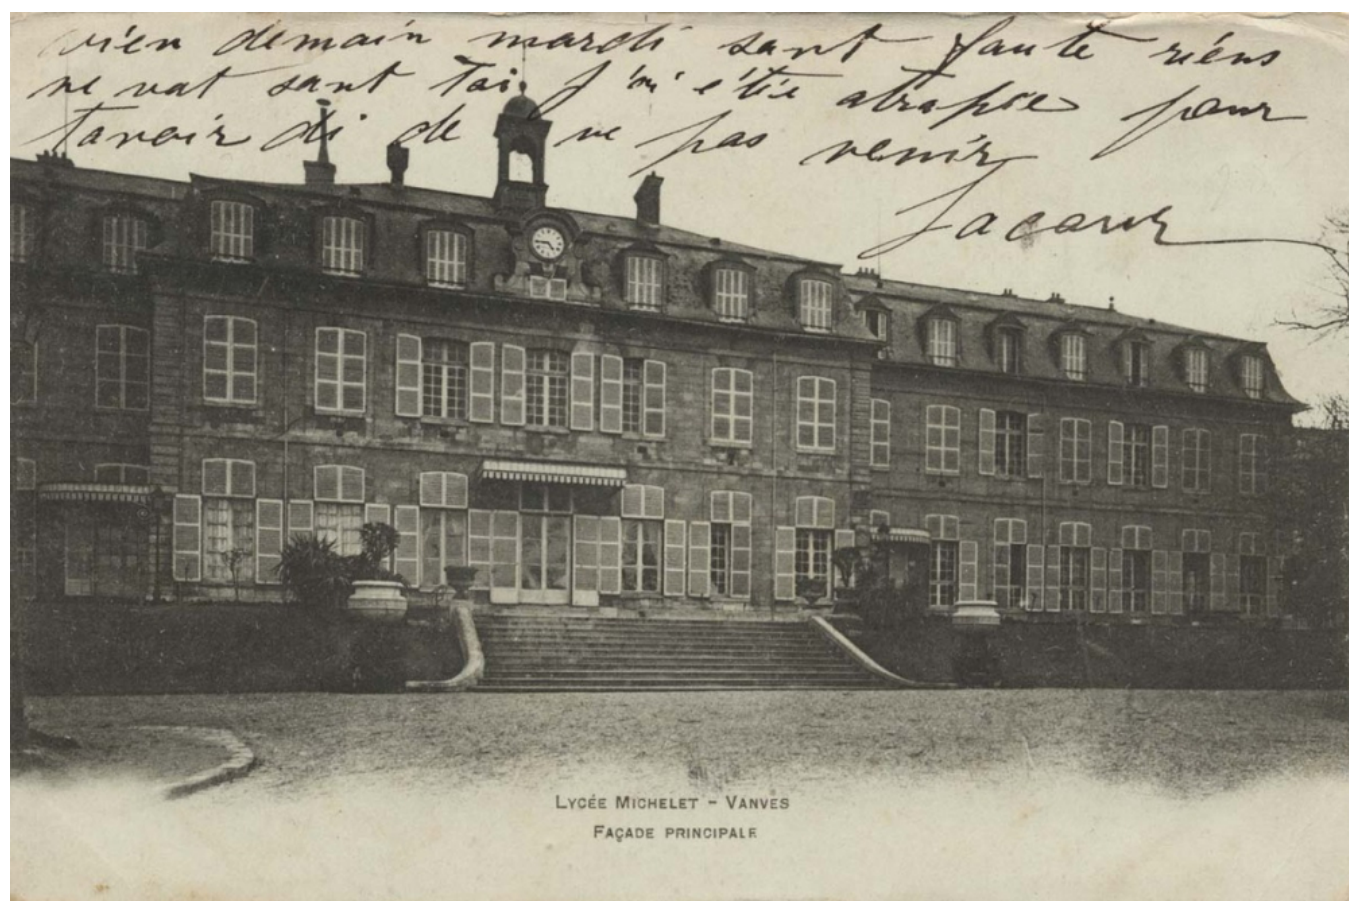 vien demain mardi sant faute riens
ne vat sant toi j'ai étée atrapée pour
tavoir di de ne pas venir
LYCÉE MICHELET - VANVES
FAÇADE PRINCIPALE